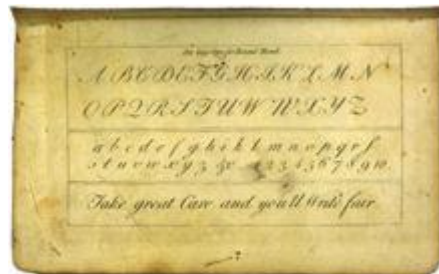 An Easy Copy for Round Hand
A B C D E F G H I K L M N
O P Q R S T U W W X Y Z
a b c d e f g h i k l m n o p q r s
s t u v w x y z &c 1 2 3 4 5 6 7 8 9 10
Take great Care and you'll Write fair